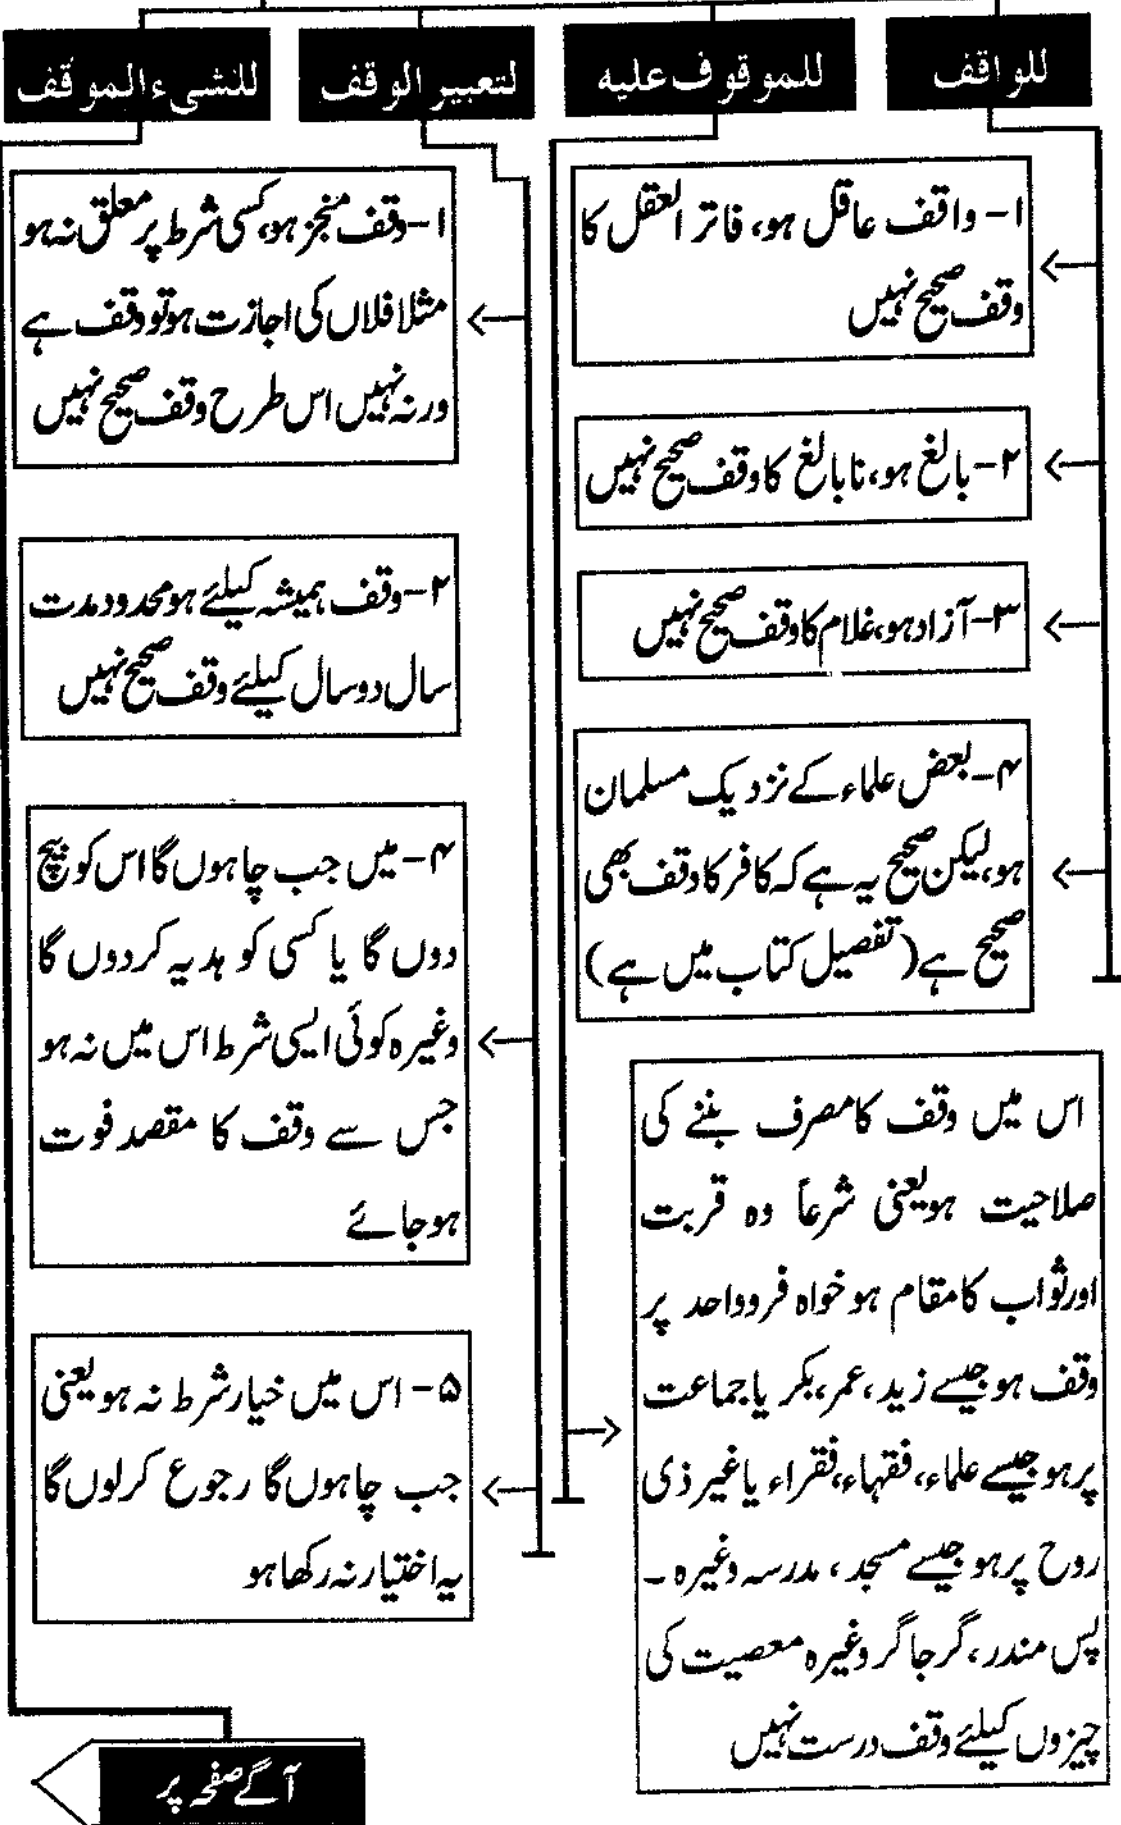 للواقف
للموقوف علیه
لتعبیر الوقف
للشیء الموقف
۱- واقف عاقل ہو، فاتر العقل کا
وقف صحیح نہیں
۲- بالغ ہو، نابالغ کا وقف صحیح نہیں
۳- آزاد ہو، غلام کا وقف صحیح نہیں
۴- بعض علماء کے نزدیک مسلمان
ہو، لیکن صحیح یہ ہے کہ کافر کا وقف بھی
صحیح ہے (تفصیل کتاب میں ہے)
اس میں وقف کا مصرف بننے کی
صلاحیت ہو یعنی شرعاً وہ قربت
اور ثواب کا مقام ہو خواہ فرو واحد پر
وقف ہو جیسے زید، عمر، بکر یا جماعت
پر ہو جیسے علماء، فقہاء، فقراء یا غیر ذی
روح پر ہو جیسے مسجد، مدرسہ وغیرہ ۔
پس مندر، گرجا گر وغیرہ معصیت کی
چیزوں کیلئے وقف درست نہیں
۱- وقف منجز ہو، کسی شرط پر معلق نہ ہو
مثلا فلاں کی اجازت ہو تو وقف ہے
ورنہ نہیں اس طرح وقف صحیح نہیں
۲- وقف ہمیشہ کیلئے ہو محدود مدت
سال دو سال کیلئے وقف صحیح نہیں
۴- میں جب چاہوں گا اس کو بیچ
دوں گا یا کسی کو ہدیہ کردوں گا
وغیرہ کوئی ایسی شرط اس میں نہ ہو
جس سے وقف کا مقصد فوت
ہو جائے
۵- اس میں خیار شرط نہ ہو یعنی
جب چاہوں گا رجوع کر لوں گا
یہ اختیار نہ رکھا ہو
آگے صفحہ پر